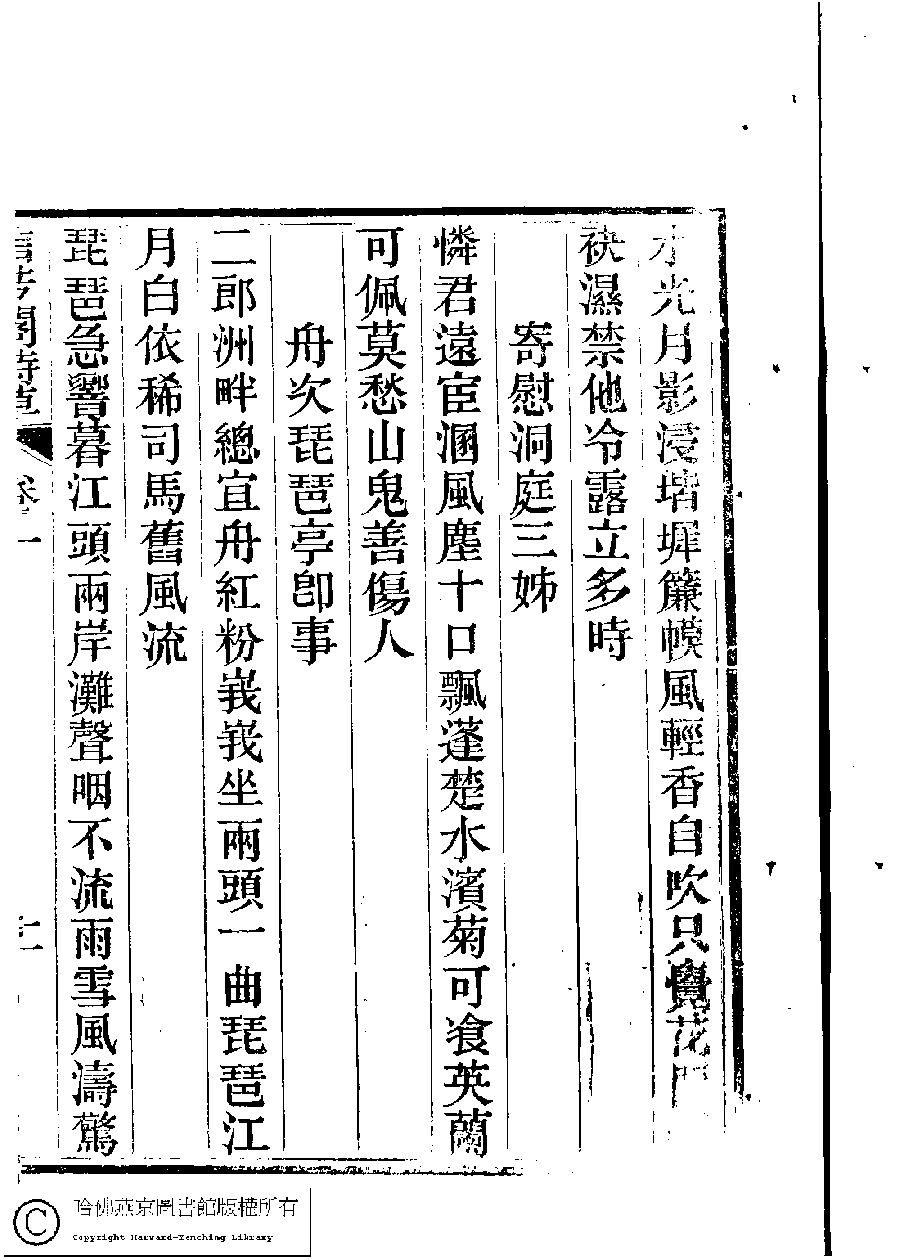 水光月影浸堦墀簾幙風輕香自吹只覺花
袂濕禁他冷露立多時
寄慰洞庭三姊
憐君遠宦溷風塵十口飄蓬楚水濱菊可飡英蘭
可佩莫愁山鬼善傷人
舟次琵琶亭卽事
二郎洲畔總宜舟紅粉峩峩坐兩頭一曲琵琶江
月白依稀司馬舊風流
琵琶急響暮江頭兩岸灘聲咽不流雨雪風濤驚
卷一
十一
哈佛燕京圖書館版權所有
Copyright Harvard-Yenching Library